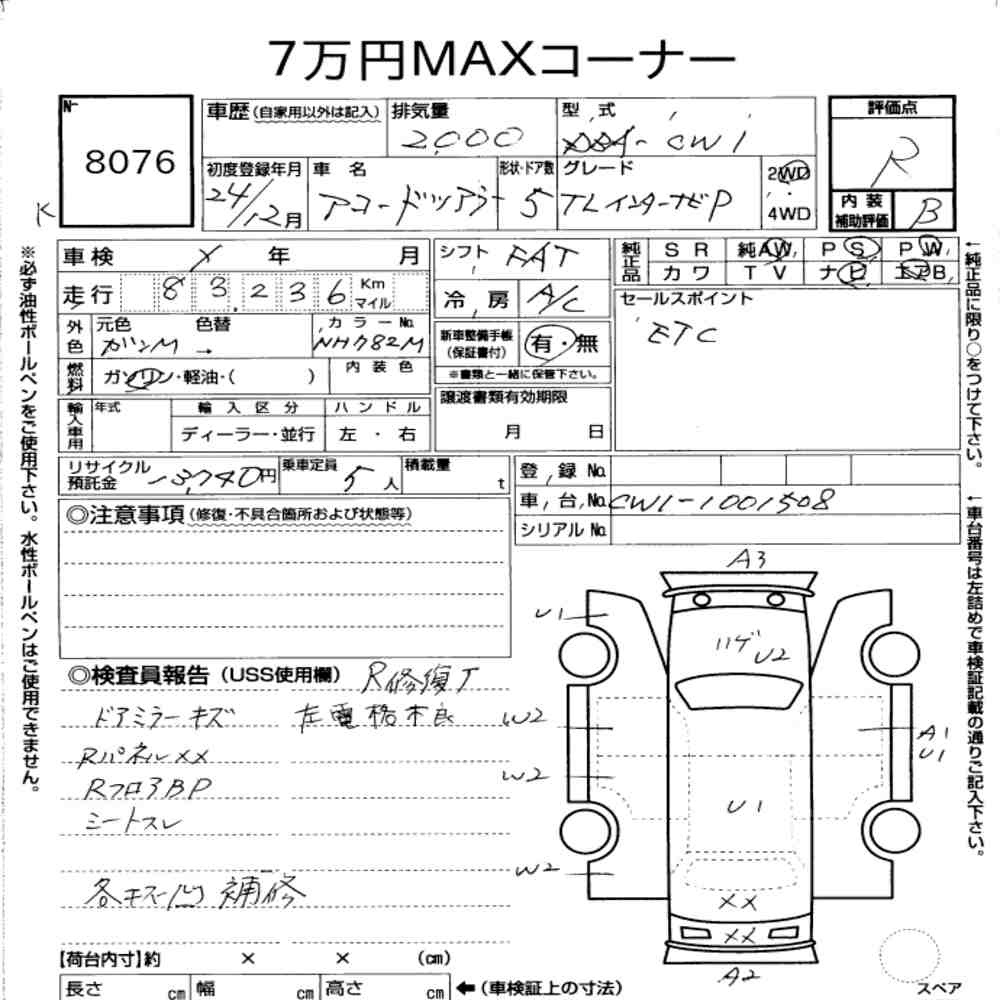 7万円MAXコーナー
N-
8076
K
車歴 (自家用以外は記入)
排気量
2000
型式
CW1
評価点
R
内装
補助評価
B
初度登録年月
24/12月
車名
アコードツアラー
形状・ドア数
5
グレード
TLインターナビP
2WD
4WD
車検 年 月
シフト
FAT
純正品
SR 純AW PS PW
カワ TV ナビ エアB
走行 83,236 Km マイル
冷房
A/C
セールスポイント
ETC
外色
元色 色替
ガンM →
カラーNo.
NH782M
新車整備手帳
(保証書付)
有・無
※書類と一緒に保管下さい。
燃料
ガソリン・軽油・( )
内装色
譲渡書類有効期限
月 日
輸入車用
年式
輸入区分
ディーラー・並行
ハンドル
左・右
リサイクル
預託金
13,740円
乗車定員
5人
積載量
t
登録No.
車台No. CW1-1001508
シリアルNo.
◎注意事項 (修復・不具合箇所および状態等)
◎検査員報告 (USS使用欄)
R修復了
ドアミラーキズ
左電格不良
Rパネル××
RフロアBP
シートスレ
各キズ凹 補修
A3
U1
ハゲ
U2
W2
A1
U1
W2
U1
W2
××
××
A2
【荷台内寸】約 × × (cm)
長さ cm 幅 cm 高さ cm ←(車検証上の寸法)
スペア
※必ず油性ボールペンをご使用下さい。水性ボールペンはご使用できません。
←純正品に限り○をつけて下さい。
←車台番号は左詰めで車検証記載の通りご記入下さい。